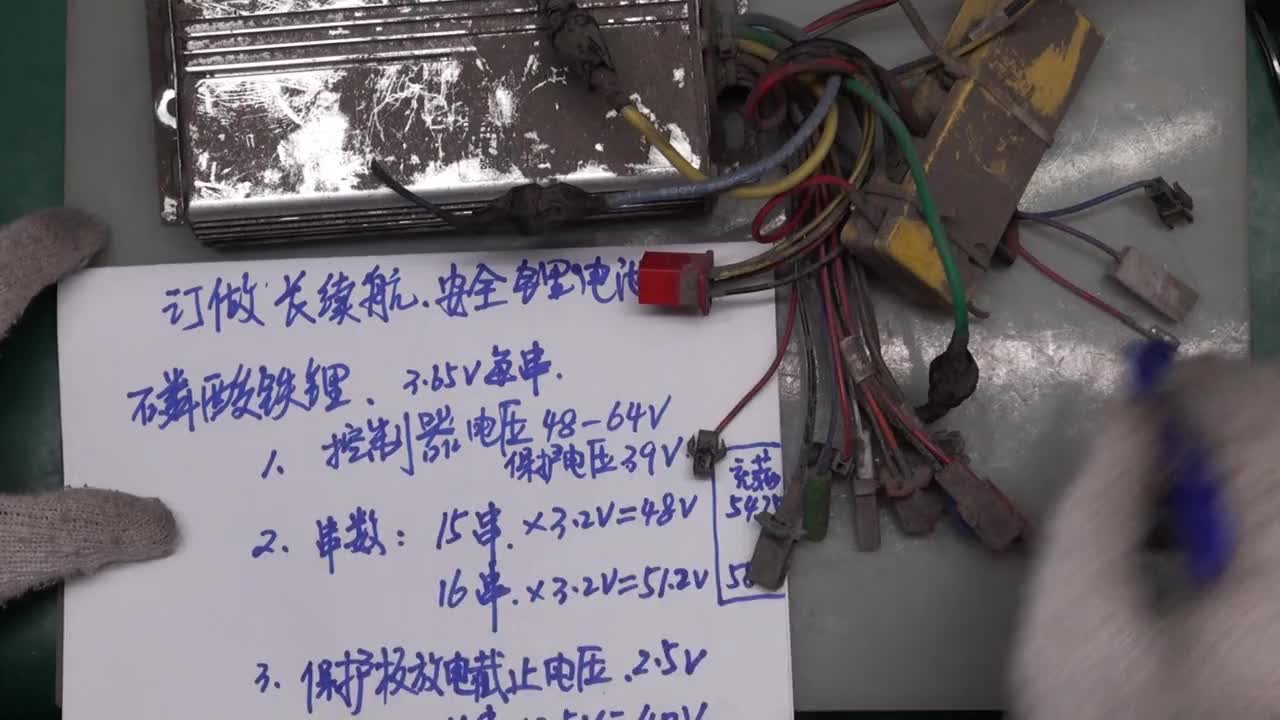 订做长续航、安全锂电池
磷酸铁锂、3.65V每串.
1、控制器电压48-64V
保护电压39V
充满
2、串数:15串.×3.2V=48V
54.75
16串.×3.2V=51.2V
58
3、保护板放电截止电压、2.5V